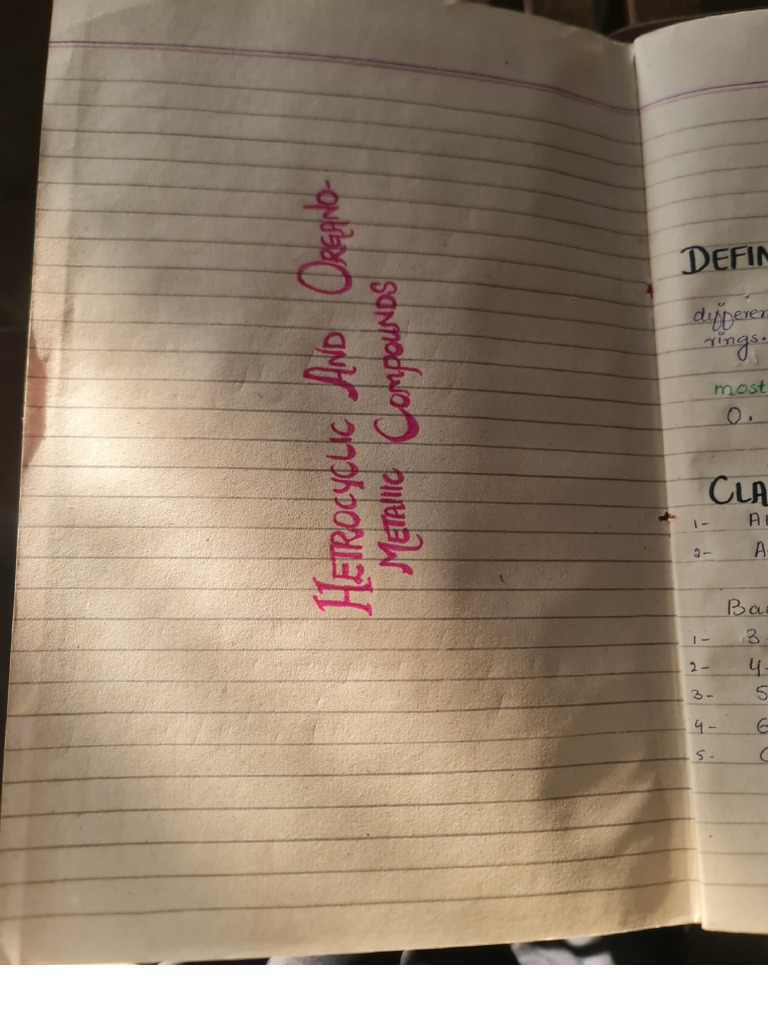 HETROCYCLIC AND ORGANO-
METALLIC COMPOUNDS
DEFIN
differen
rings.
most
O.
CLA
1-
2- A
Ba
1- 3
2- 4-
3- 5
4- 6
5-